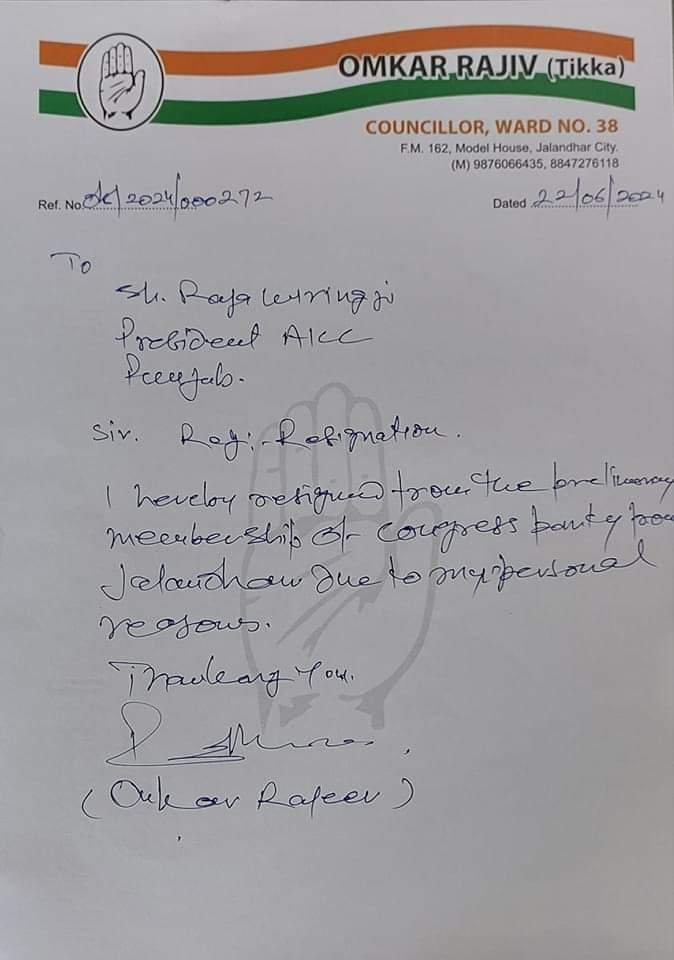 OMKAR RAJIV (Tikka)
COUNCILLOR, WARD NO. 38
F.M. 162, Model House, Jalandhar City.
(M) 9876066435, 8847276118
Ref. No. OK/2024/000272
Dated 22/06/2024
To
Sh. Raja Warring ji
President AICC
Punjab.
Sir. Reg:- Resignation.
I hereby resigned from the preliminary
membership of Congress party from
Jalandhar due to my personal
reasons.
Thanking You.
(Omkar Rajeev)